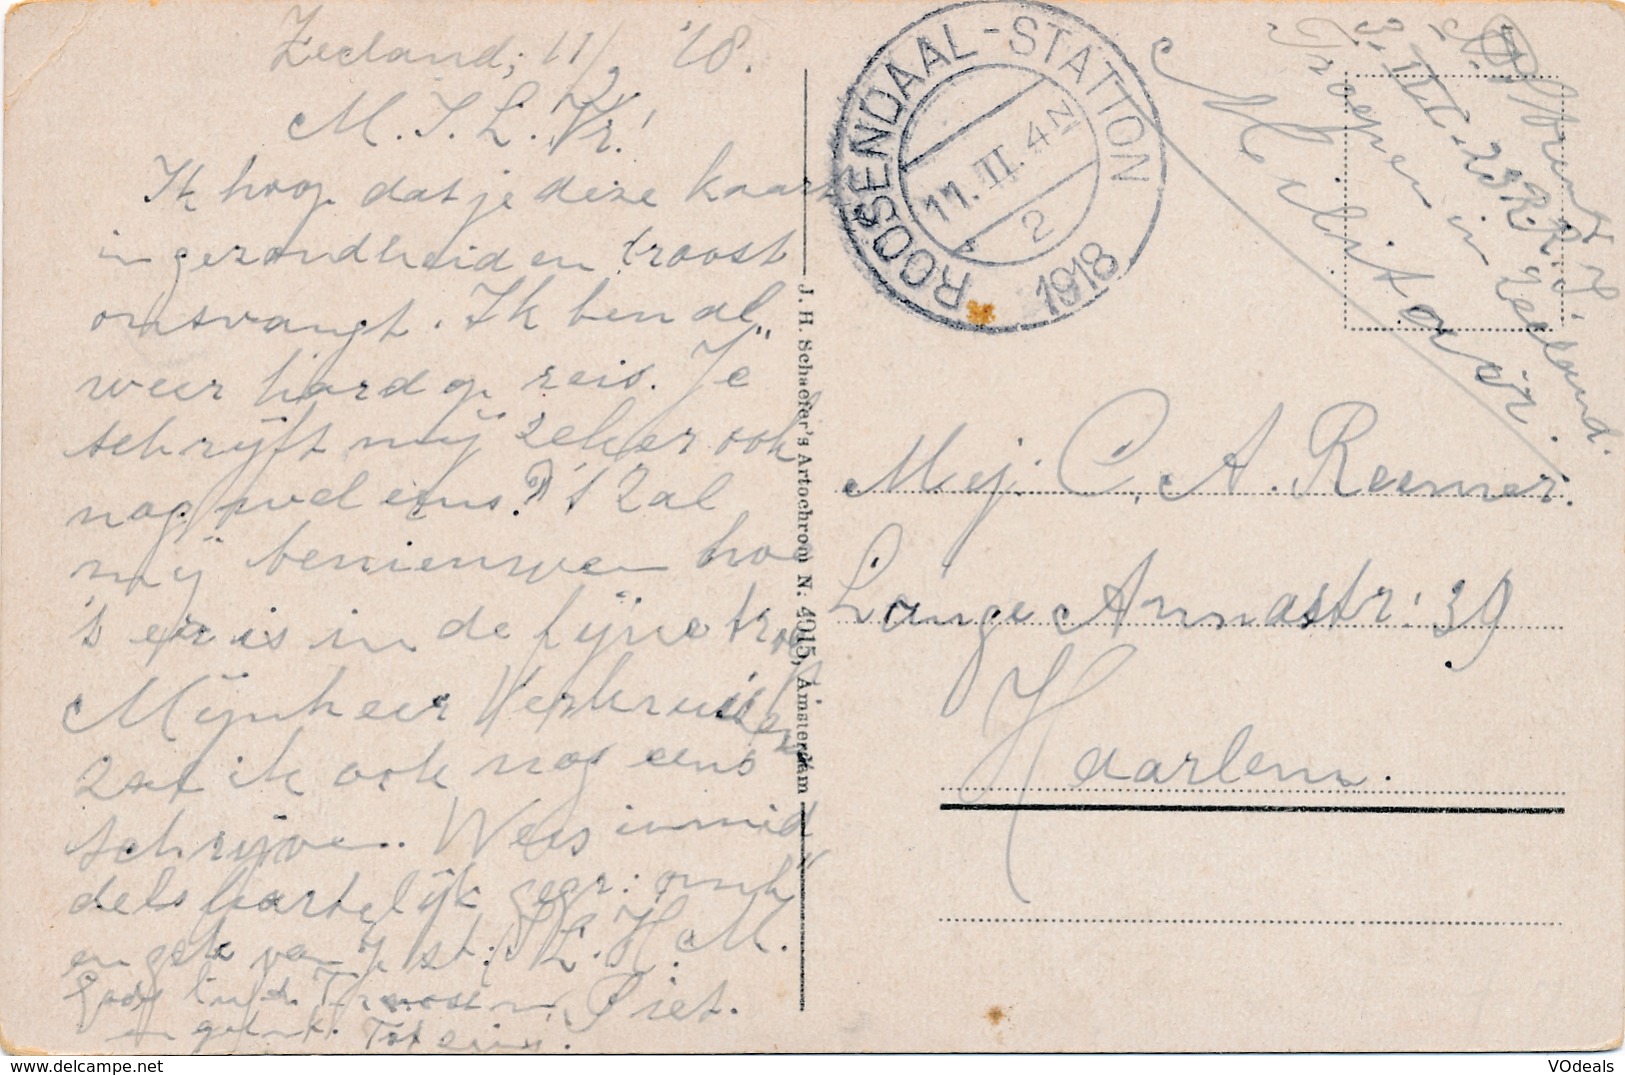 Zeeland, 11/2 '18.
M. I. L. Vr!
Ik hoop dat je deze kaart
in gezondheid en troost
ontvangt. Ik ben al
weer hard op reis. Je
schrijft mij zeker ook
nog wel eens? 't Zal
mij benieuwen hoe
't er is in de fijne
Mijnheer Verkruisen
zal ik ook nog eens
schrijven. Wees inmid
dels hartelijk gegr: omh
en gek van je st. I. L. H. M.
Piet.
Tot ziens.
J. H. Schaefer's Artochrom N. 4015, Amsterdam
ROOSENDAAL-STATION
11. II. 4 N
2
1918
3. III. 23 R. I.
Troepen in Zeeland.
Militair.
Mej. C. A. Reemer.
Lange Annastr: 39
Haarlem.
VOdeals